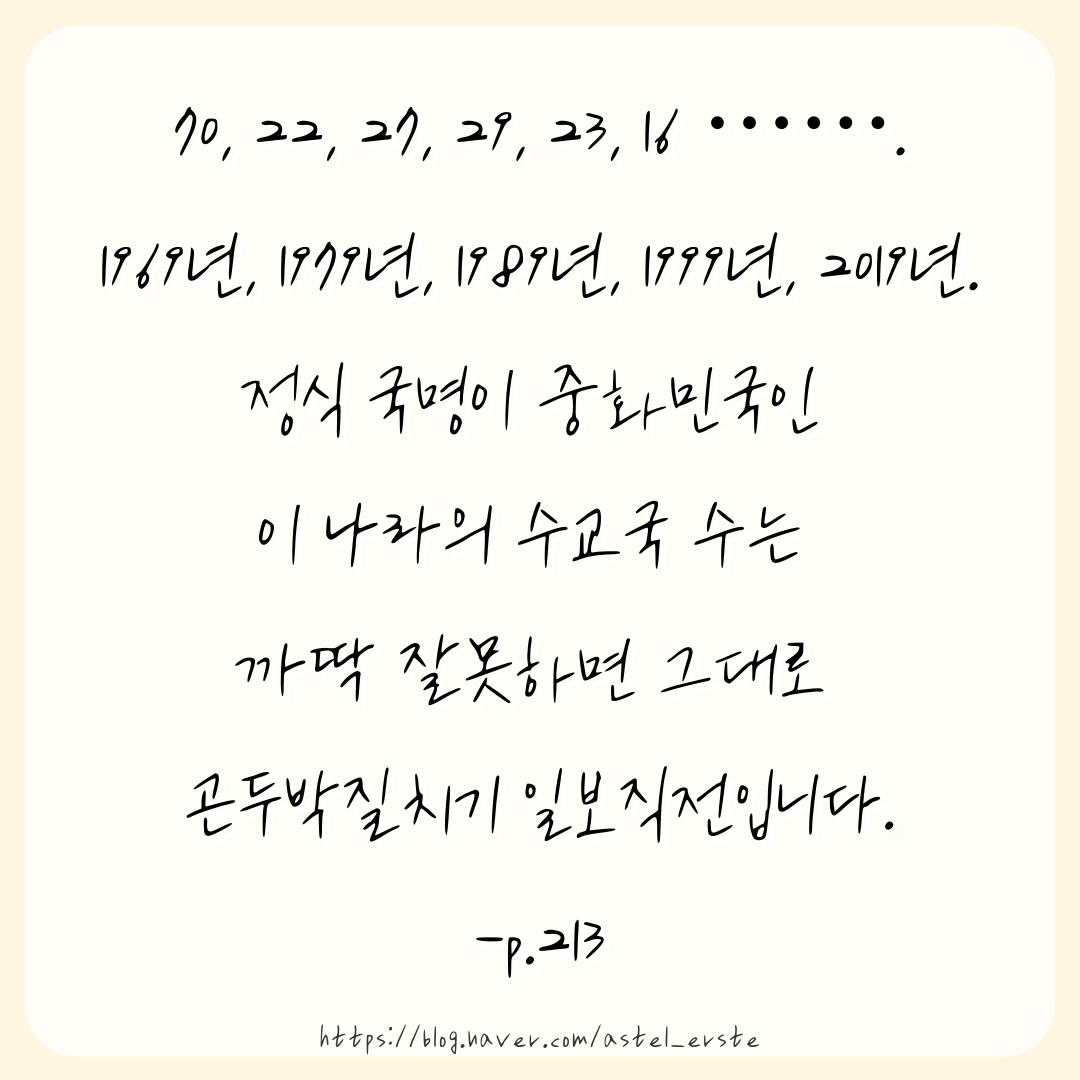 70, 22, 27, 29, 23, 16 ••••••.
1969년, 1979년, 1989년, 1999년, 2019년.
정식 국명이 중화민국인
이 나라의 수교국 수는
까딱 잘못하면 그대로
곤두박질치기 일보직전입니다.
-p.213
https://blog.naver.com/astel_erste